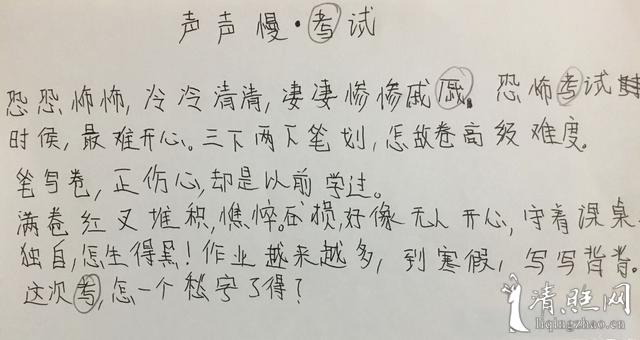 声声慢·考试
恐恐怖怖,冷冷清清,凄凄惨惨戚戚。恐怖考试
时候,最难开心。三下两下笔划,怎敌卷高级难度。
笔写卷,正伤心,却是以前学过。
满卷红叉堆积,憔悴。损,好像无人开心,守着课桌
独自,怎生得黑!作业越来越多,到寒假,写写背背。
这次考,怎一个愁字了得?
清照网
liqingzhao.cn